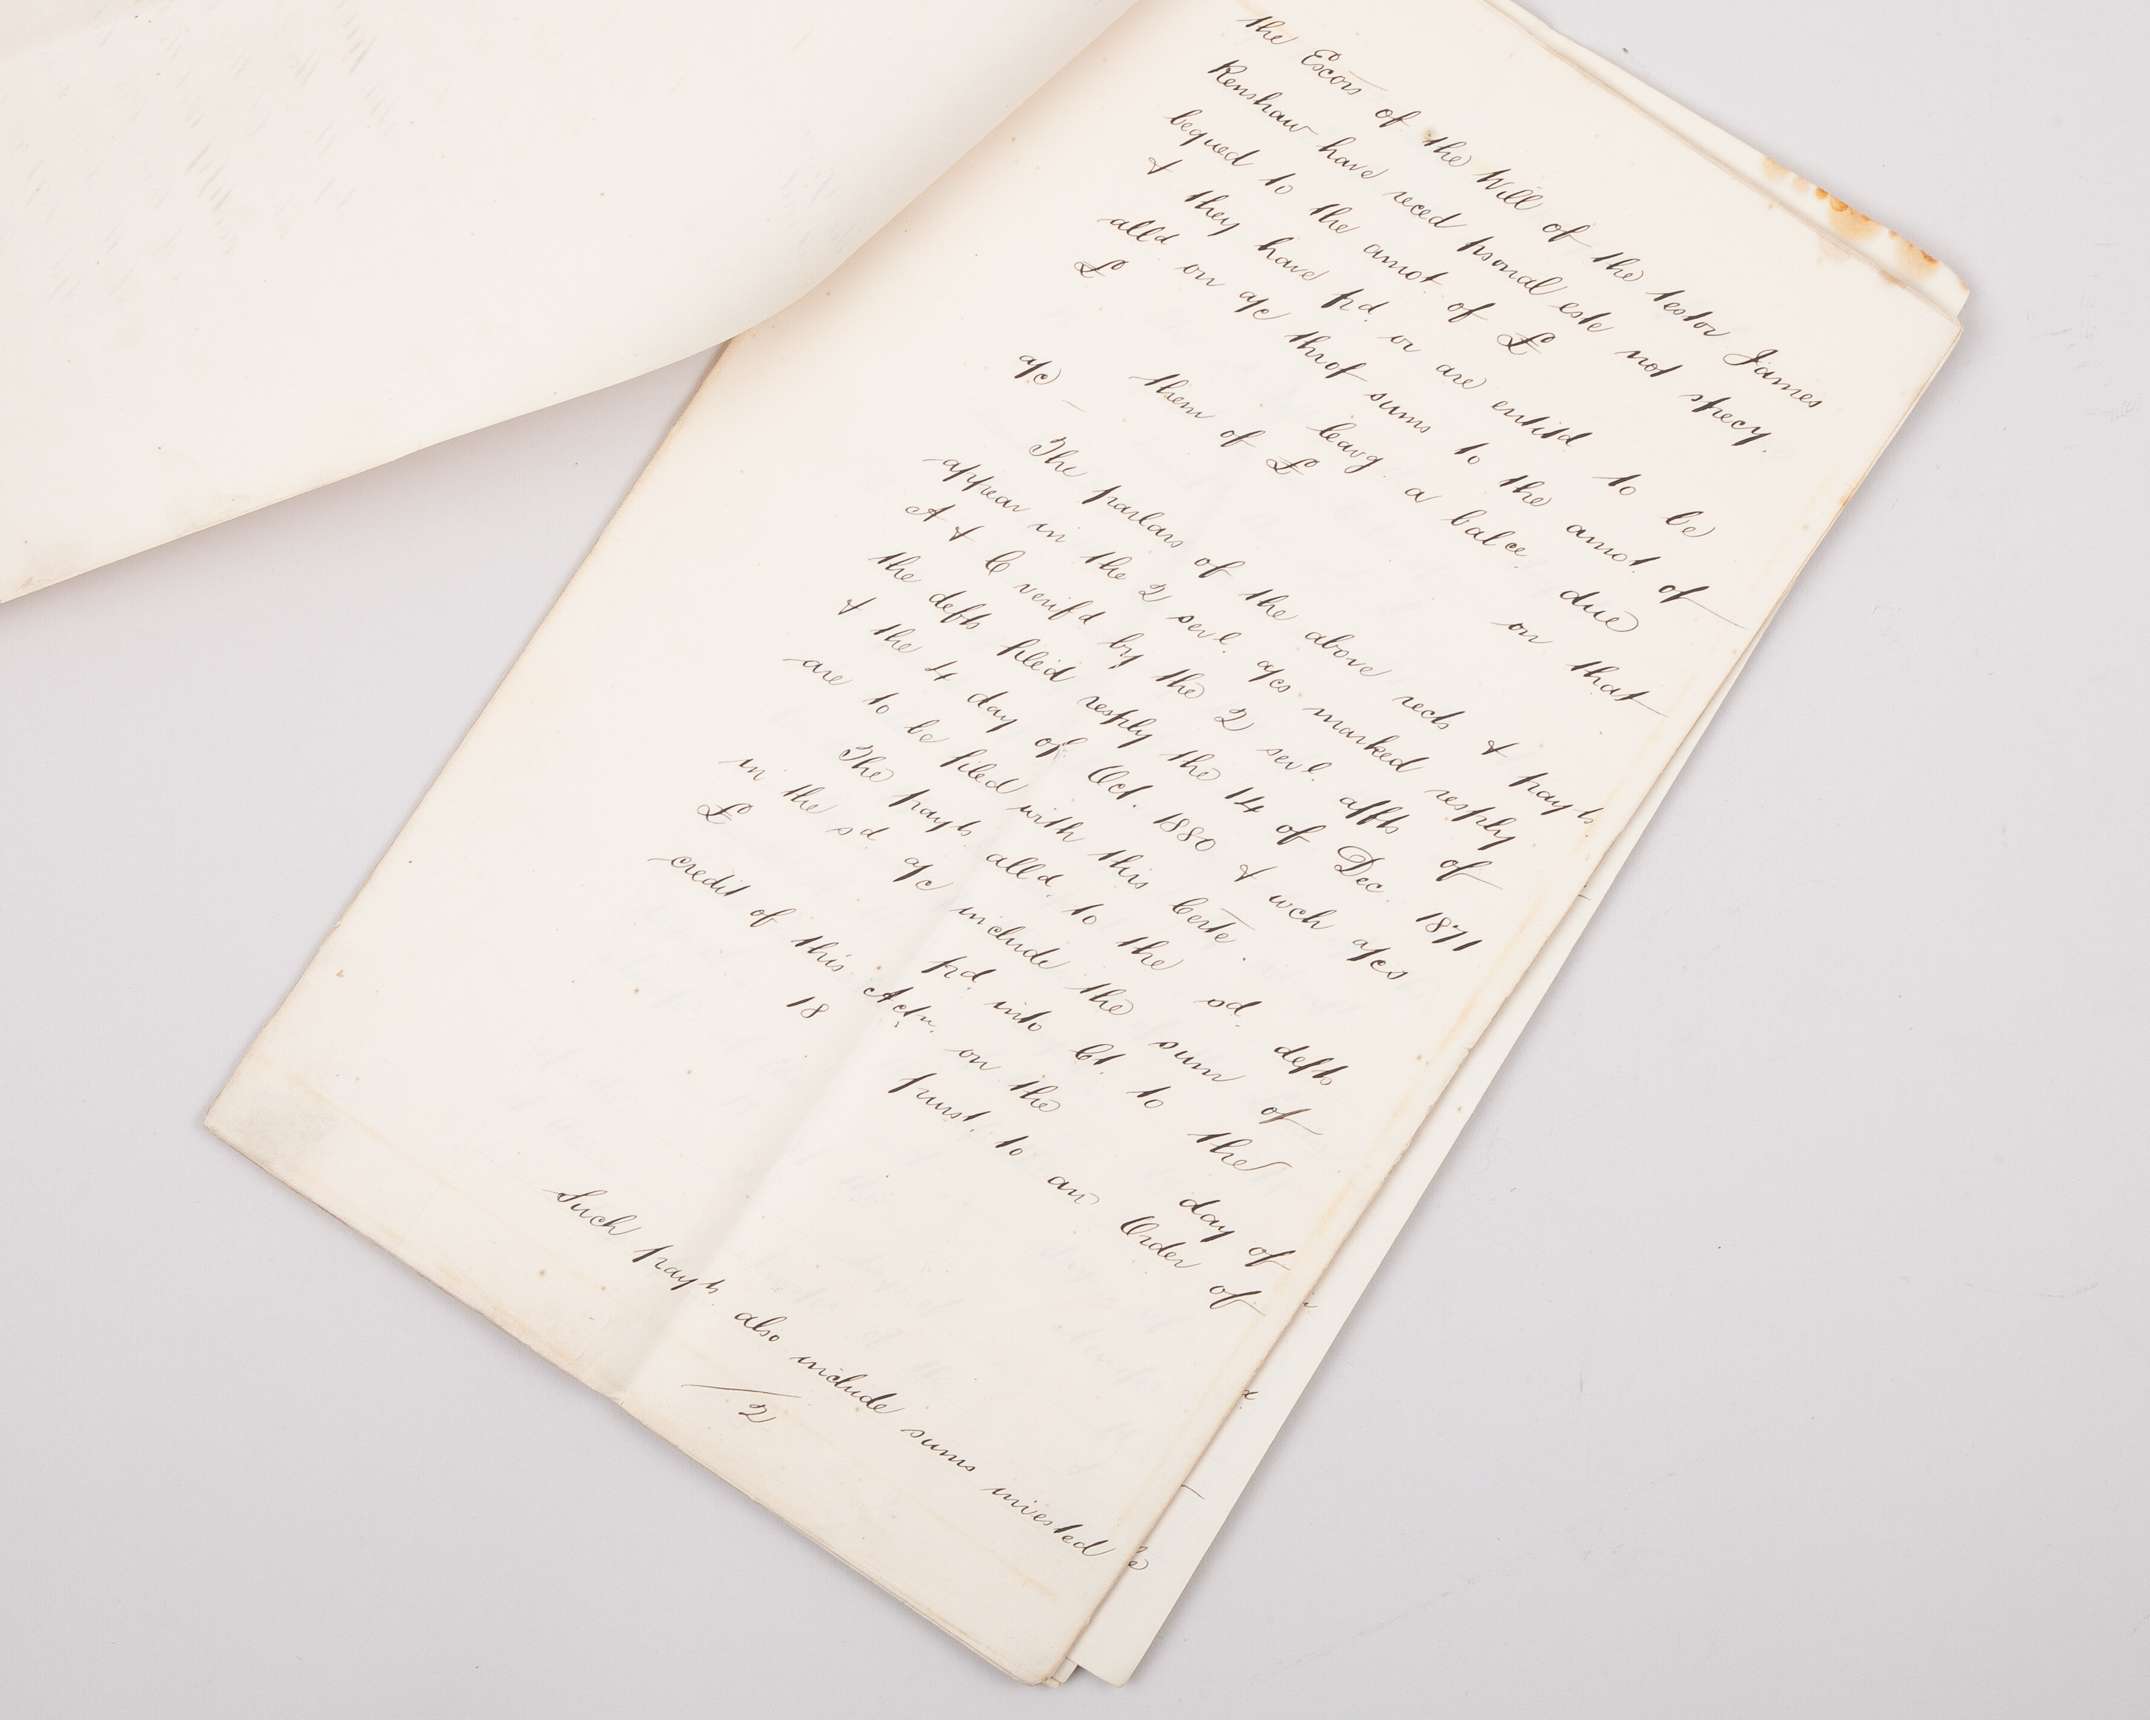 the Exors of the Will of the testor James
Renshaw have reced psonal este not specy.
bequed to the amot. of £
& they have pd. or are entitd to be
alld on a/c throf sums to the amot. of
£ leavg. a balce. due
them of £ on that
a/c –
The parlars of the above rects & payts
appear in the 2 sevl. a/cs marked resply
A & C verifd by the 2 sevl. affts of
the defts filed resply the 14 of Dec. 1871
& the 4 day of Oct. 1880 & wch a/cs
are to be filed with this Certe.
The payts. alld. to the sd. defts
in the sd a/c include the sum of
£ pd. into Ct. to the
credit of this Actn. on the day of
18 purst. to an Order of
Such payts. also include sums invested
2